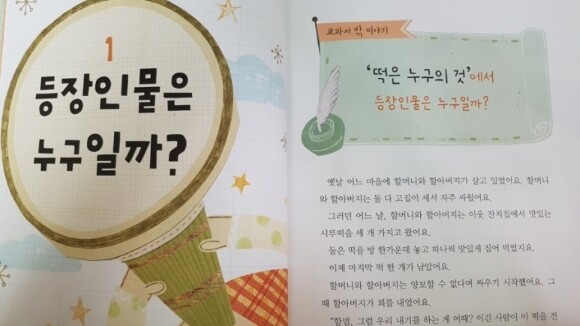 1
등장인물은
누구일까?
교과서 밖 이야기
‘떡은 누구의 것’에서
등장인물은 누구일까?
옛날 어느 마을에 할머니와 할아버지가 살고 있었어요. 할머니
와 할아버지는 둘 다 고집이 세서 자주 싸웠어요.
그러던 어느 날, 할머니와 할아버지는 이웃 잔칫집에서 맛있는
시루떡을 세 개 가지고 왔어요.
둘은 떡을 방 한가운데 놓고 하나씩 맛있게 집어 먹었지요.
이제 마지막 떡 한 개가 남았어요.
할머니와 할아버지는 양보할 수 없다며 싸우기 시작했어요. 그
때 할아버지가 꾀를 내었어요.
“할멈, 그럼 우리 내기를 하는 게 어때? 이긴 사람이 이 떡을 전